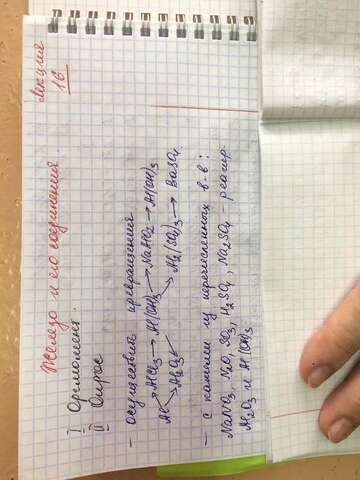 Лекция
16
Железо и его соединения.
I Оргмомент.
II Опрос
- осуществить превращения
AlCl3 → Al(OH)3 → NaAlO2 → Al(OH)3
Al
Al2O3 Al2(SO4)3 → BaSO4
- с какими из перечисленных в-в:
NaNO3, N2O, SO3, H2SO4, Na2SO4 - реагир.
Al2O3 и Al(OH)3